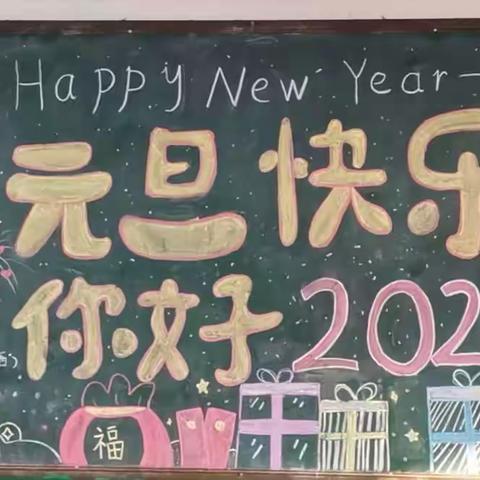 Happy New Year
元旦快乐
你好202
福